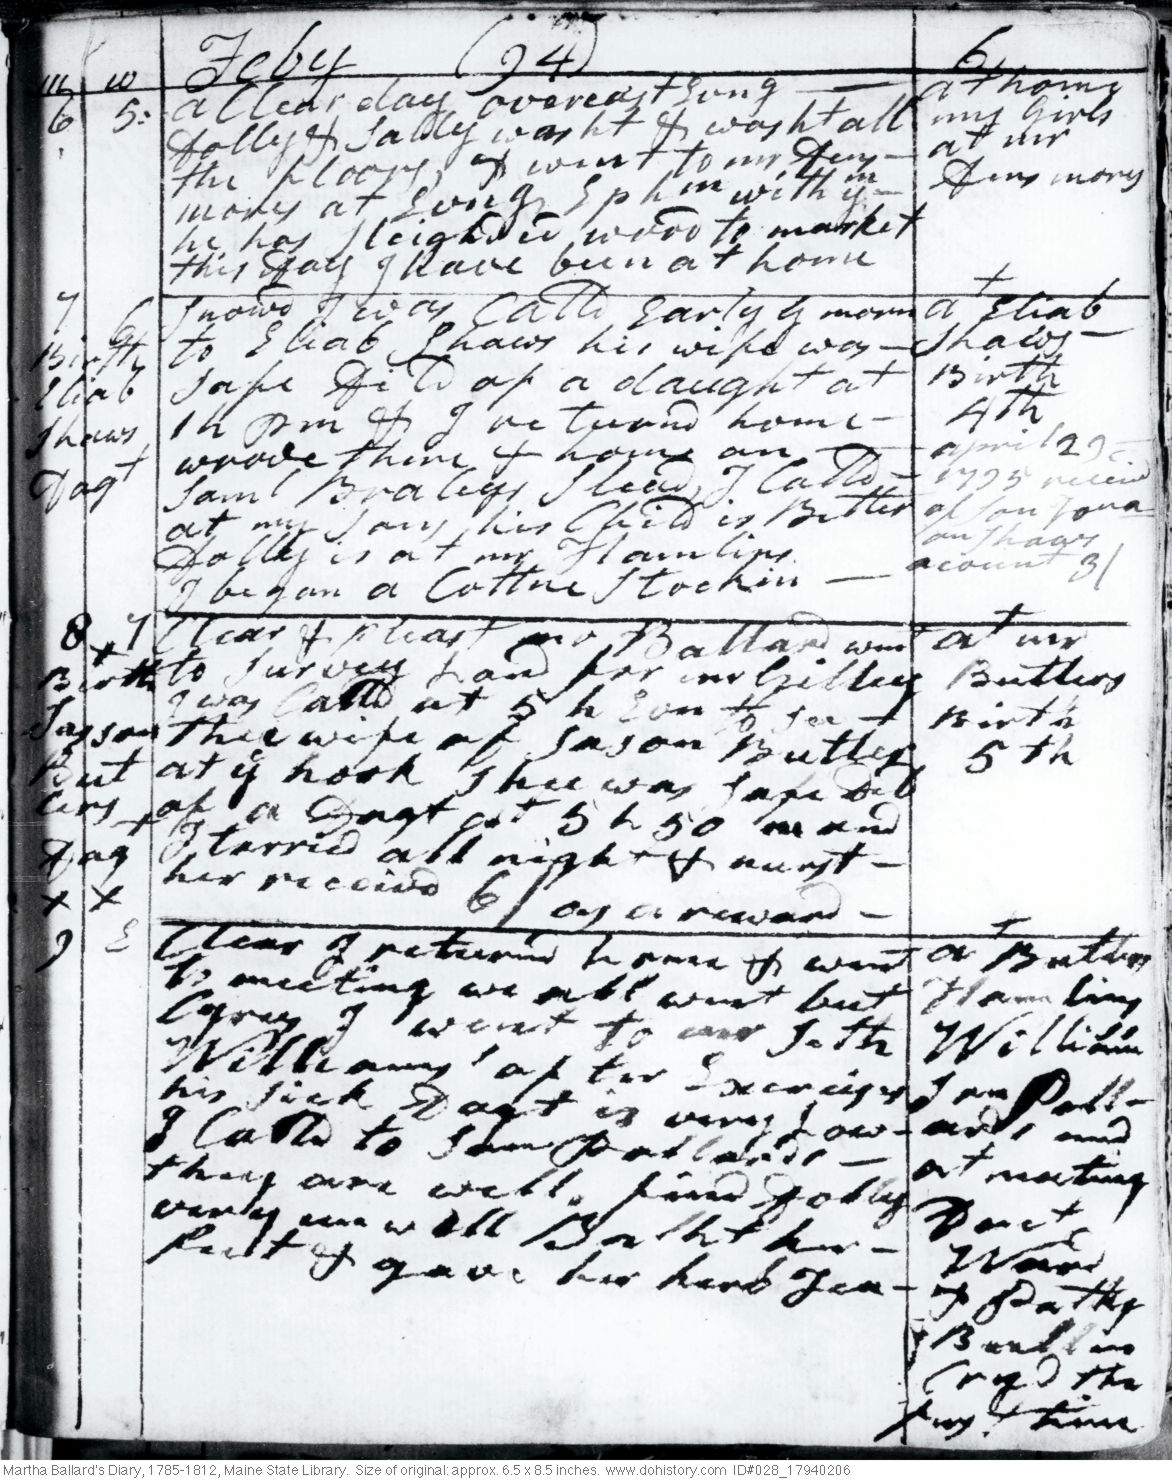 Feby (94) 6
m w
6 5: a Clear day overcast Evng — at home
Dolly & Sally washt & washt all my Girls
the floors, & went to mr Dens— at mr
mores at Evng, Ephm with ym — Densmores
he has sleighd wood to market
this day I have been at home
7 6 Snowd I was Calld Early y morn at Eliab
Birth to Eliab Shaws his wife was — Shaws —
Eliab safe Deld of a daught at Birth
Shaws 1 h pm & I returnd home — 4th
Dagt wrode there & home on — april 29 —
Saml Braleys slead, I Calld — 1795 receivd
at my sons, his Child is Better of Son Jona-
Dolly is at mr Hamlins than Shaws
I began a Cottne Stockin — acount 3/
8 7 Clear & pleast mr Ballard went at mr
Birth to survey Land for mr Gilley Butlers
Jayson I was Calld at 5 h Evn to see — Birth
But thee wife of Jason Butler 5th
lers at ye hook shee was safe Del
of a Dagt at 5 h 50 m and
Dag I tarried all night & nurst —
x x her receivd 6/ as a reward —
9 E Clear I returnd home & went at Butlers
to meeting we all went but Hamlins
Cyrus I went to mr Seth William
Williams' after Exercises Sam Poll-
his sick Dagt is very Low — ards and
I Calld to Sam Pollards — at meeting
they are well. find Dolly Doct
very unwell Batht her — Ward
feet & gave her herb Tea — & Pathy
Bullin
Cryd the
first time
Martha Ballard's Diary, 1785-1812, Maine State Library. Size of original: approx. 6.5 x 8.5 inches. www.dohistory.com ID#028_17940206